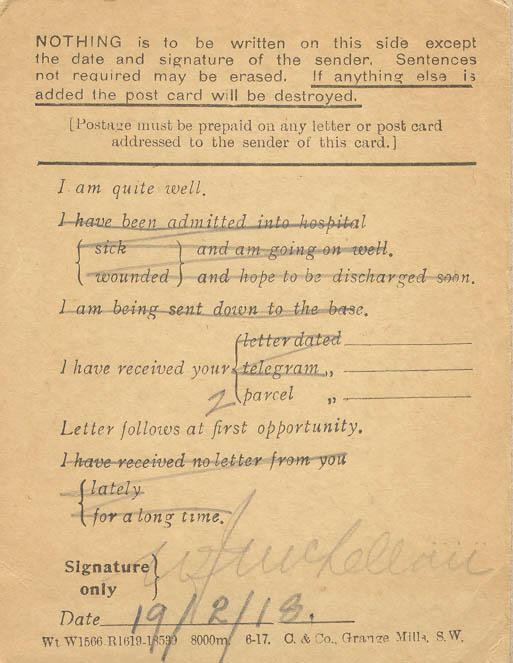 NOTHING is to be written on this side except
the date and signature of the sender. Sentences
not required may be erased. If anything else is
added the post card will be destroyed.
[Postage must be prepaid on any letter or post card
addressed to the sender of this card.]
I am quite well.
I have been admitted into hospital
sick and am going on well.
wounded and hope to be discharged soon.
I am being sent down to the base.
letter dated
I have received your telegram „
2 parcel „
Letter follows at first opportunity.
I have received no letter from you
lately
for a long time.
Signature
only
Date 19/2/18.
Wt W1566 R1619-18539 8000m. 6-17. C. & Co., Grange Mills, S.W.